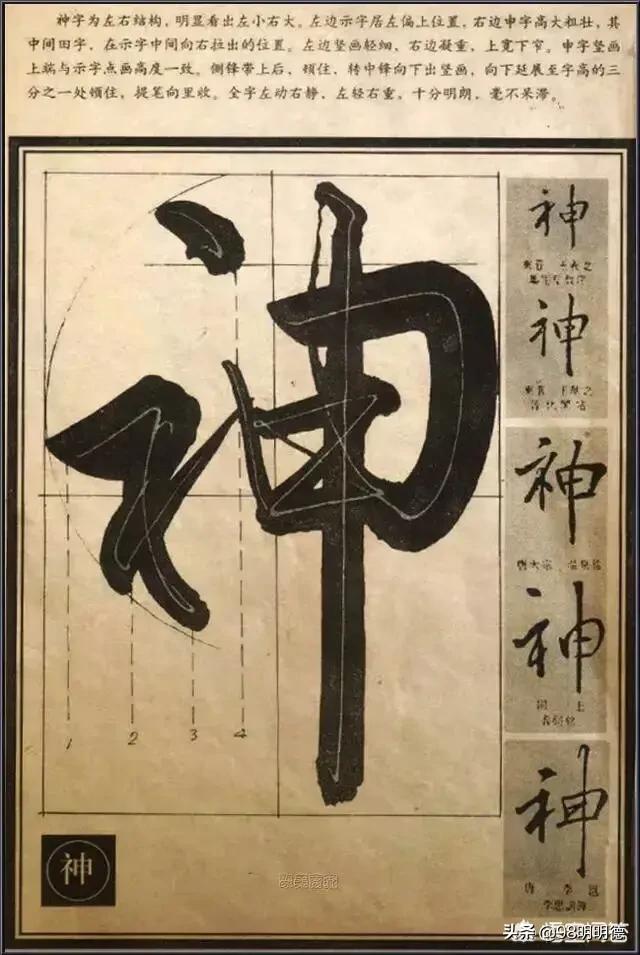 神字为左右结构，明显看出左小右大。左边示字居左偏上位置，右边申字高大粗壮，其
中间田字，在示字中间向右拉出的位置。左边竖画轻细，右边凝重，上宽下窄。申字竖画
上端与示字点画高度一致。侧锋带上后，顿住，转中锋向下出竖画，向下延展至字高的三
分之一处顿住，提笔向里收。全字左动右静，左轻右重，十分明朗，毫不呆滞。
神
1 2 3 4
神
神
神
神
唐太宗
同上
神
唐 李邕
李思训碑
神
头条 @98明明德